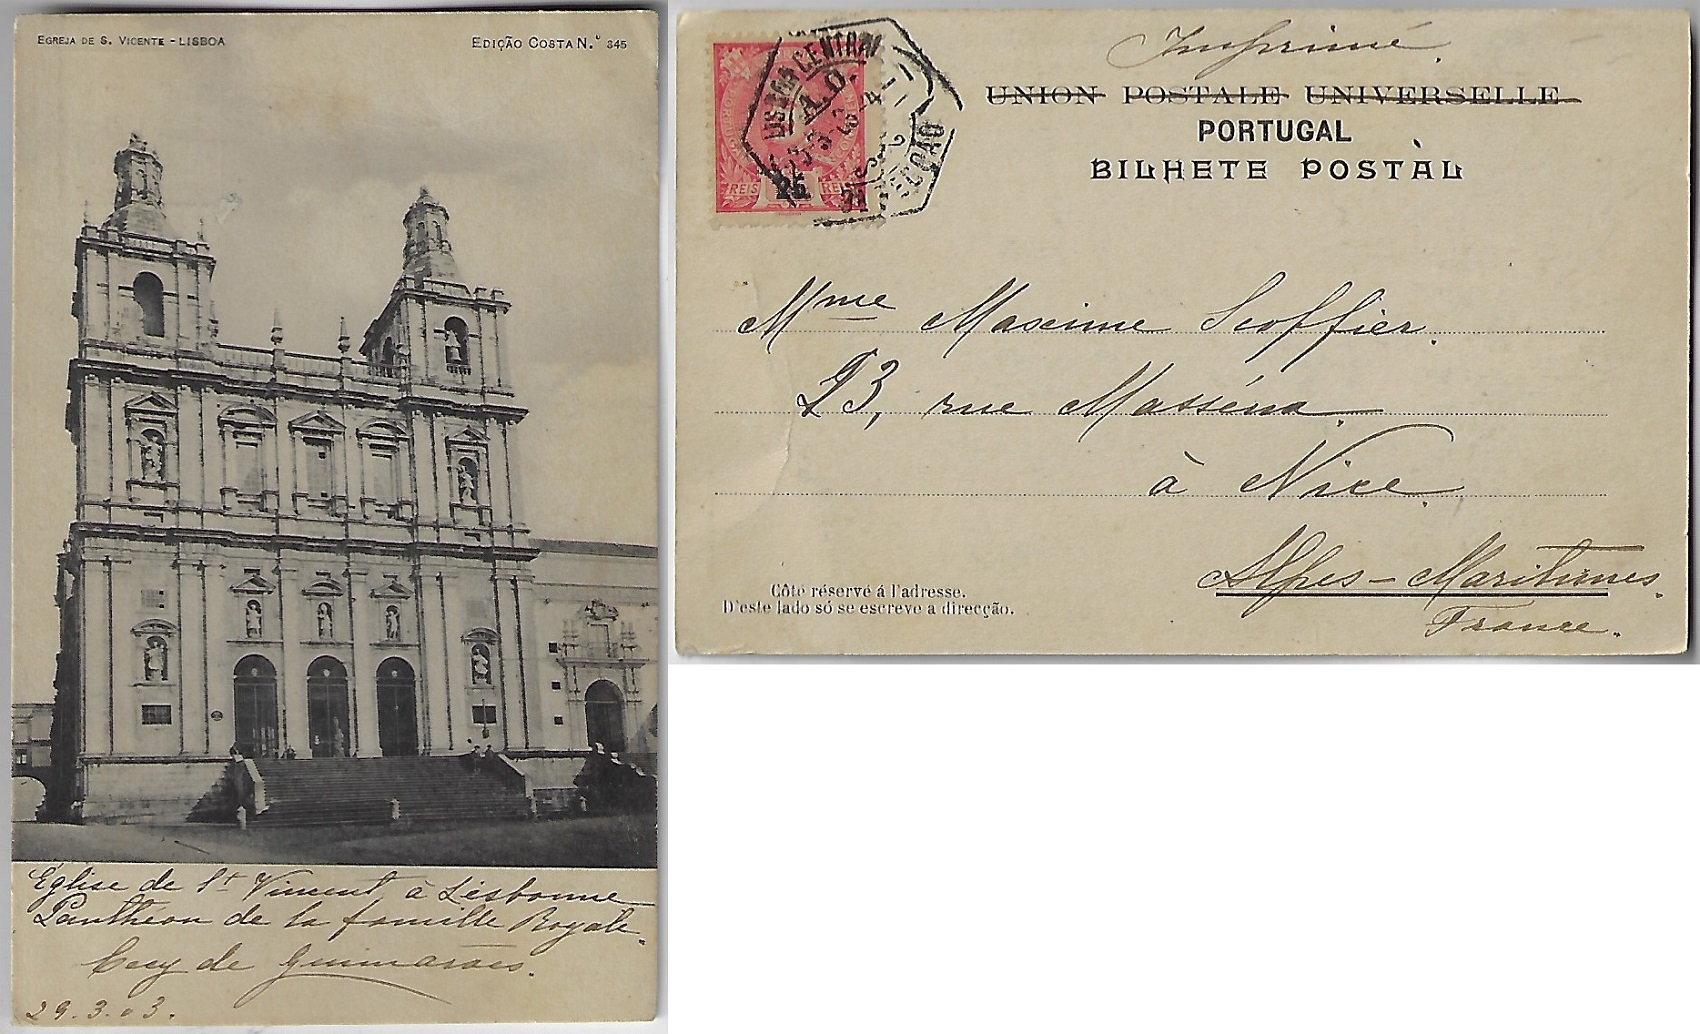 EGREJA DE S. VICENTE - LISBOA
EDIÇÃO COSTA N.º 345
Église de St Vincent, à Lisbonne
Panthéon de la famille Royale.
Cecy de Guimarães.
29.3.03.
Imprimé
UNION POSTALE UNIVERSELLE
PORTUGAL
BILHETE POSTAL
LISBOA CENTRAL
SECÇÃO
REIS 25 REIS
Mme Maxime Scoffier.
23, rue Masséna
à Nice
Alpes-Maritimes.
France.
Côté réservé á l'adresse.
D'este lado só se escreve a direcção.